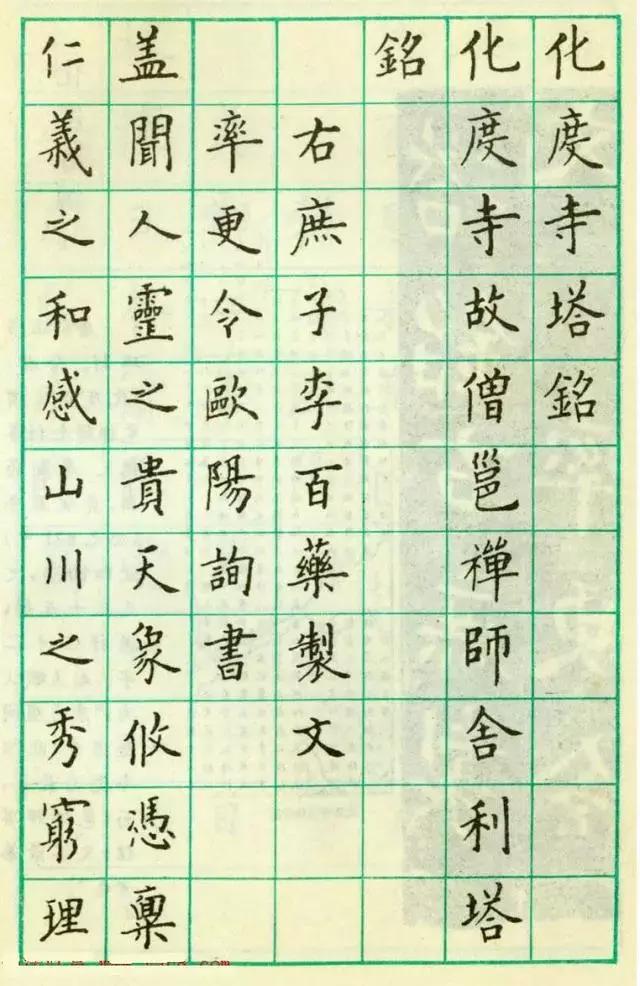 化度寺塔銘
化度寺故僧邕禪師舍利塔
銘
右庶子李百藥製文
率更令歐陽詢書
盖聞人靈之貴天象攸憑禀
仁義之和感山川之秀窮理